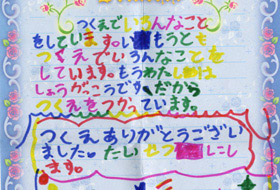 つくえでいろんなこと
をしています。い もうとも
つくえでいろんなことを
しています。もうわたしは
しょうがっこうです、だから
つくえをつかっています。
つくえありがとうござい
ました。たいせつ にし
ます。